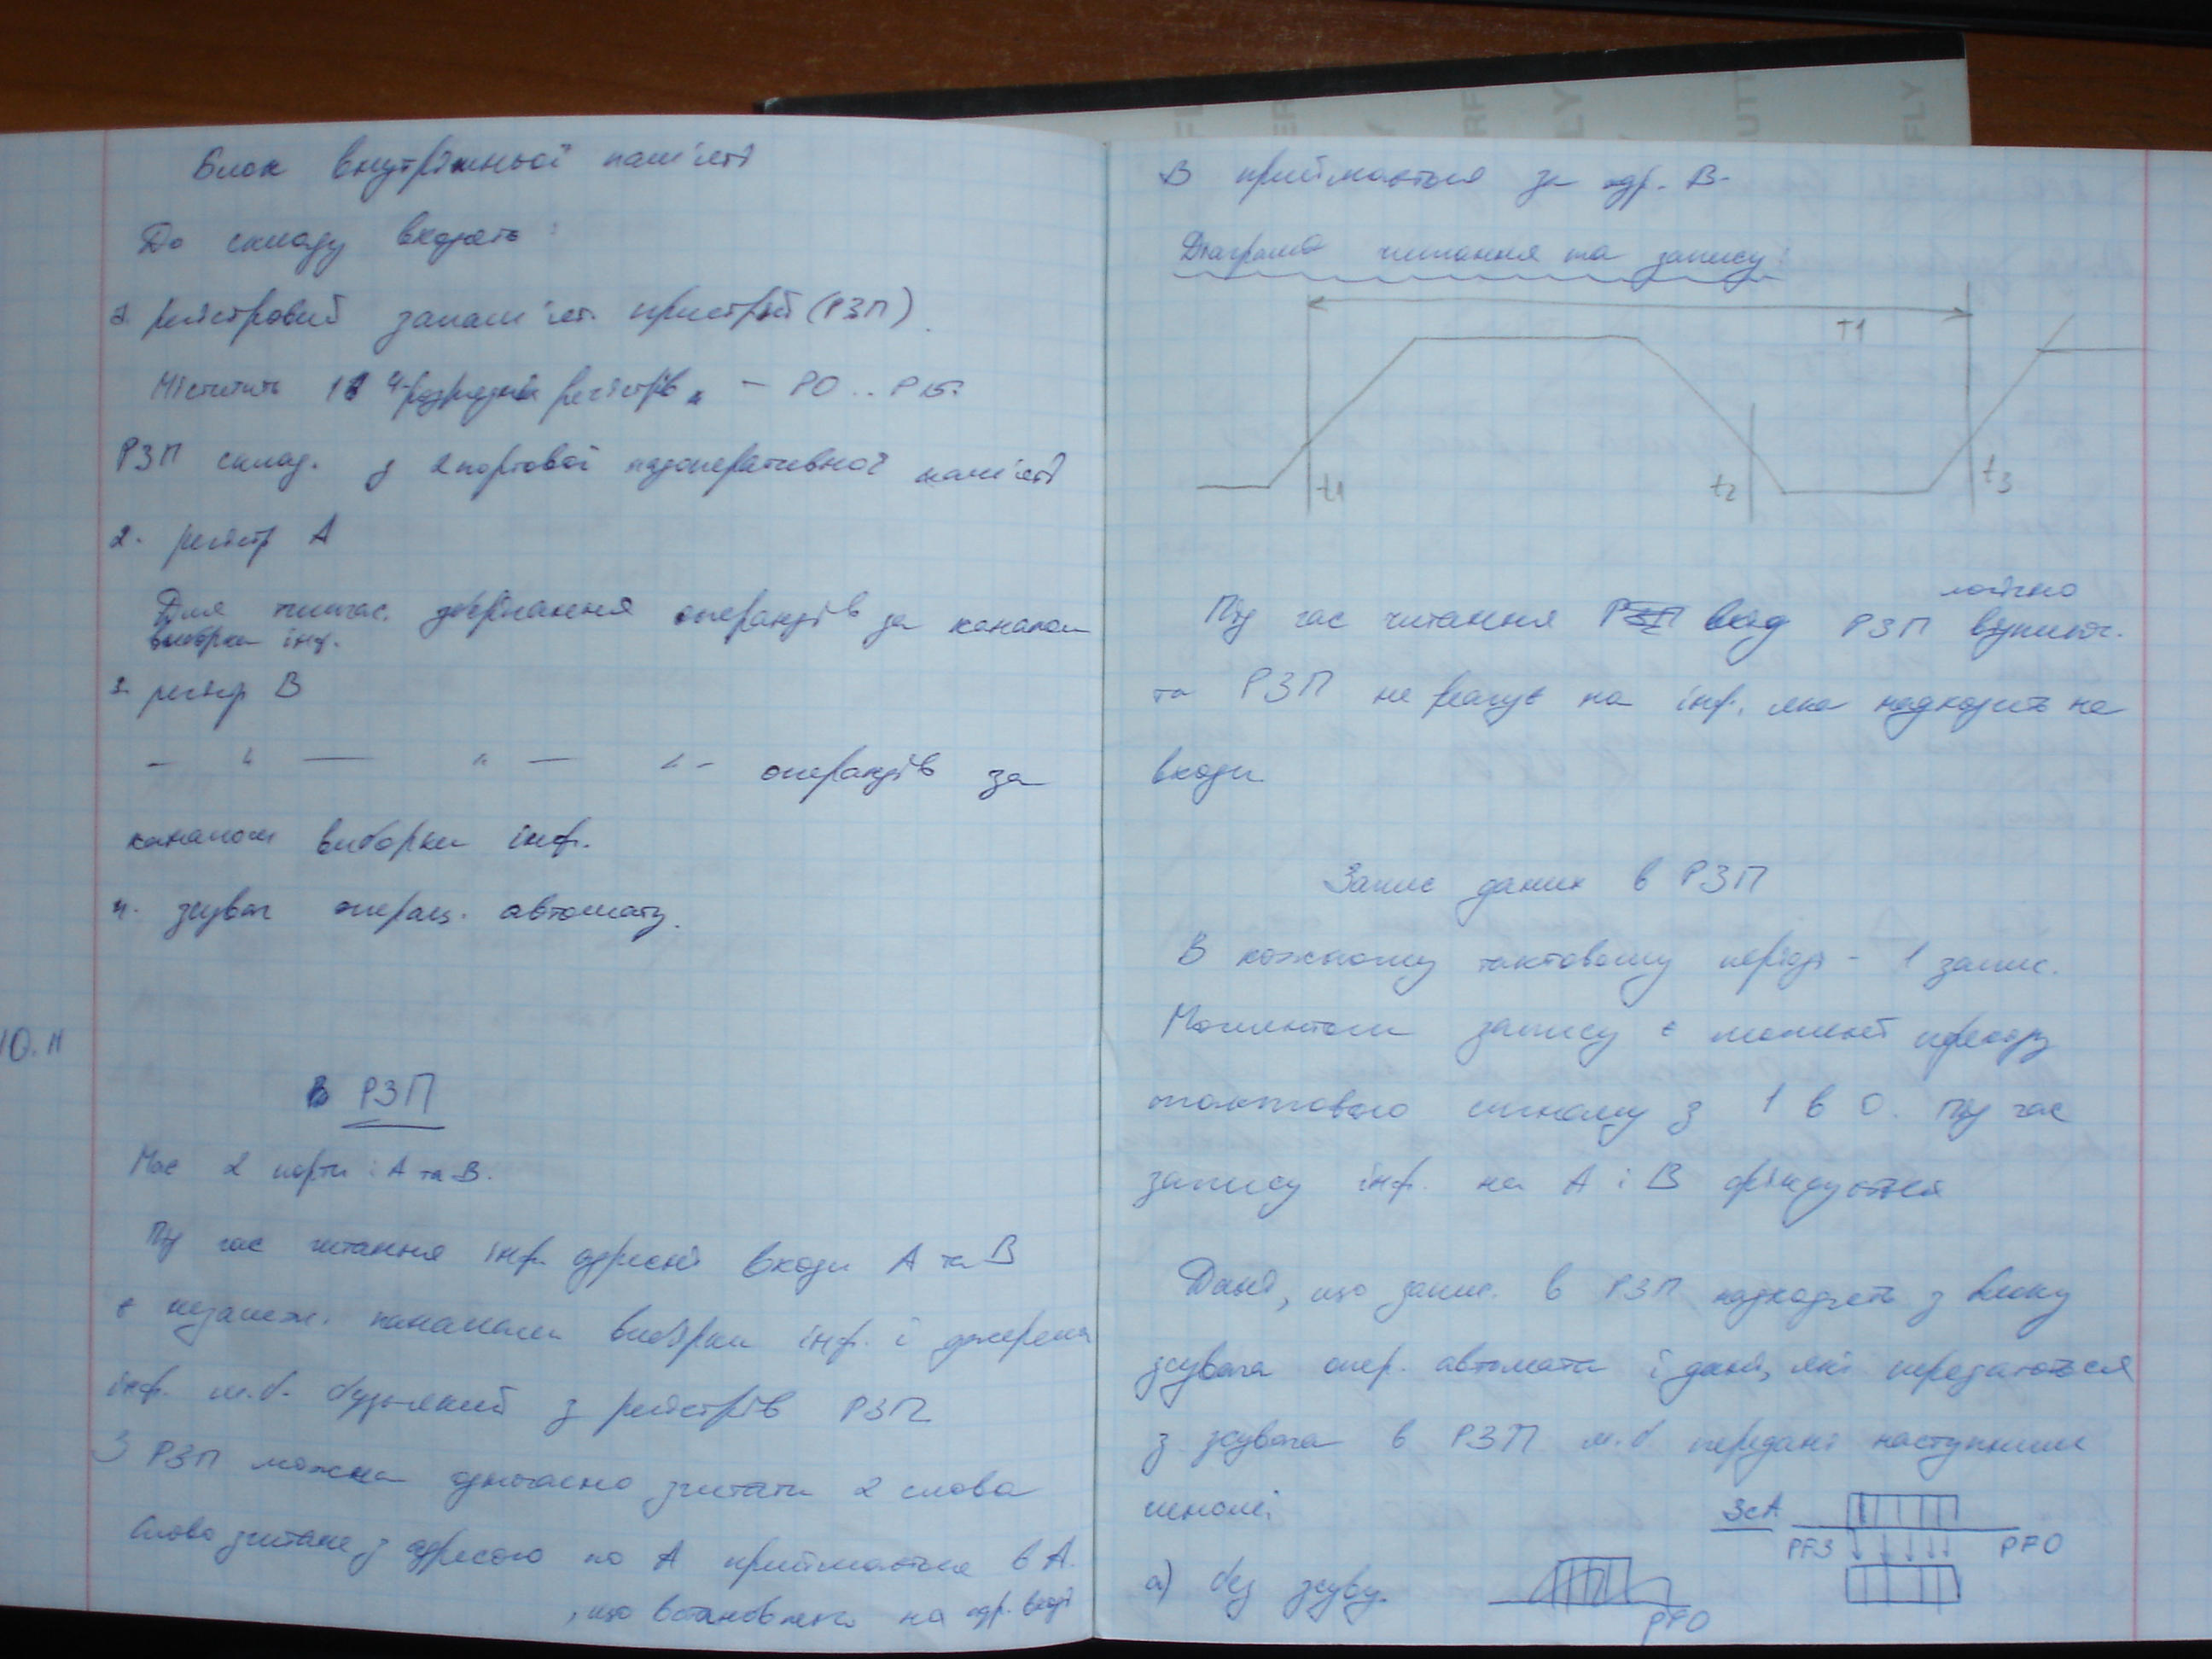 Блок внутрішньої пам'яті
До складу входять:
1. регістровий запам'ят. пристрій (РЗП).
Містить 16 4-розрядних регістрів - Р0..Р15.
РЗП склад. з 2портової надоперативної пам'яті
2. регістр А
Для тимчас. зберігання операндів за каналом
виборки інф.
3. регістр В
— " — " — " - операндів за
каналом виборки інф.
4. зсувач операц. автомату.
10.11
В РЗП
Має 2 порти: А та В.
Під час читання інф. адресні входи А та В
є незалежн. каналами вибірки інф. і джерелом
інф. м.б. будь-який з регістрів РЗП
З РЗП можна одночасно зчитати 2 слова
Слово зчитане з адресою по А приймається в А.
, що встановлено на адр. вході
В приймається за адр. В.
Діаграма читання та запису:
T1
t1
t2
t3
логічно
Під час читання вхід РЗП вимикн.
та РЗП не реагує на інф., яка надходить на
входи
Запис даних в РЗП
В кожному тактовому періоді - 1 запис.
Моментом запису є момент переходу
тактового сигналу з 1 в 0. Під час
запису інф. на А і В фіксується
Дані, що запис. в РЗП надходять з блоку
зсувача опер. автомата і дані, які передаються
з зсувача в РЗП м.б. передані наступними
чином:
ЗсА
PF3
PF0
а) без зсуву.
PF0